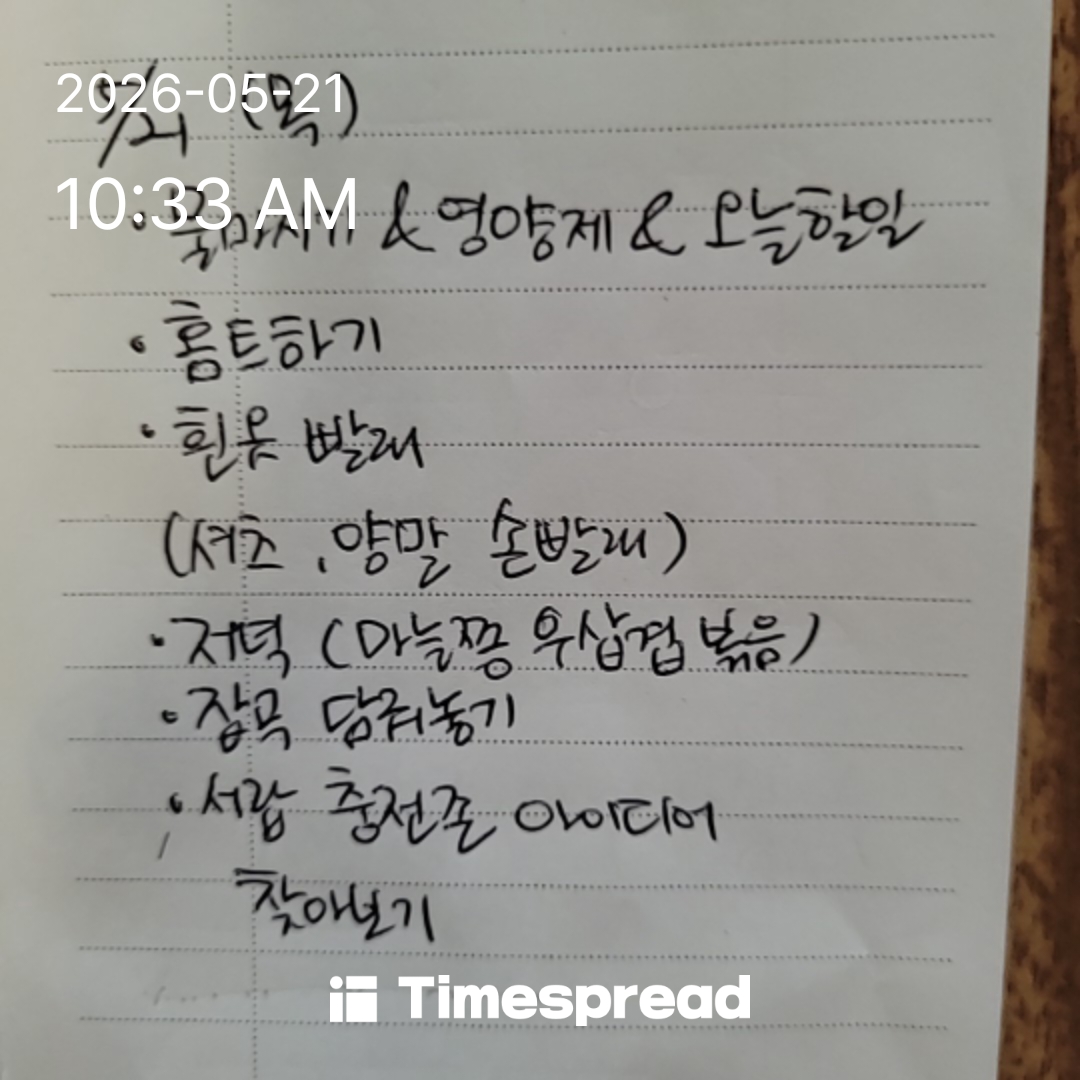 2026-05-21
5/21 (목)
10:33 AM
· 물마시기 & 영양제 & 오늘할일
· 홈트하기
· 흰옷 빨래
(셔츠, 양말 손빨래)
· 저녁 (마늘쫑 우삼겹 볶음)
· 잡곡 담궈놓기
· 서랍 충전존 아이디어
찾아보기
Timespread